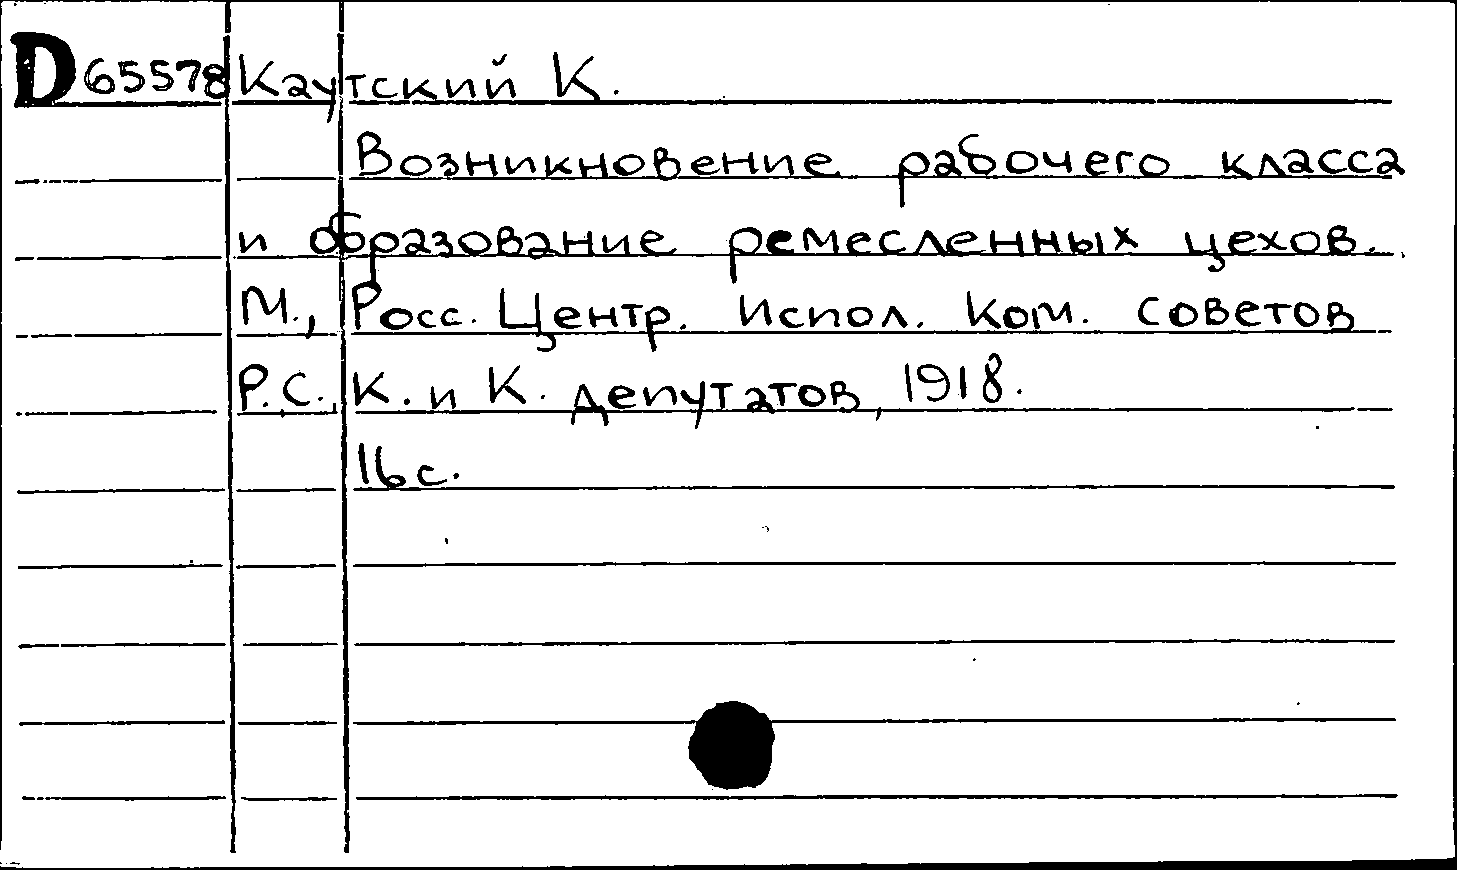 D65578 Каутский К.
Возникновение рабочего класса
и образование ремесленных цехов.
М., Росс. Центр. Испол. Ком. советов
Р.С., К. и К. депутатов, 1918.
16 с.